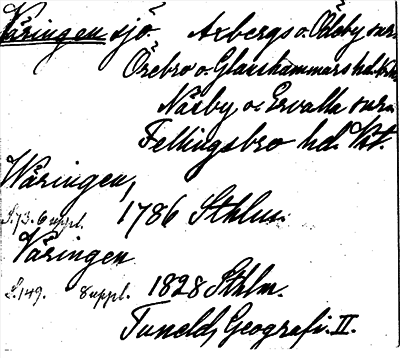 Väringen sjö Axbergs o. Ödeby snr.
Örebro o. Glanshammars hd.
Näsby o. Ervalla snr.
Fellingsbro hd. Vstm.
Wäringen,
S. 73. 6 uppl. 1786 Sthlm.
Väringen
S. 149. 8 uppl. 1828 Sthlm.
Tunelds Geografi. II.